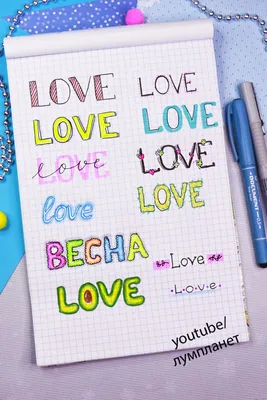 LOVE LOVE
LOVE LOVE
love LOVE
LOVE
love LOVE
ВЕСНА Love
LOVE Love
youtube/
лумпланет